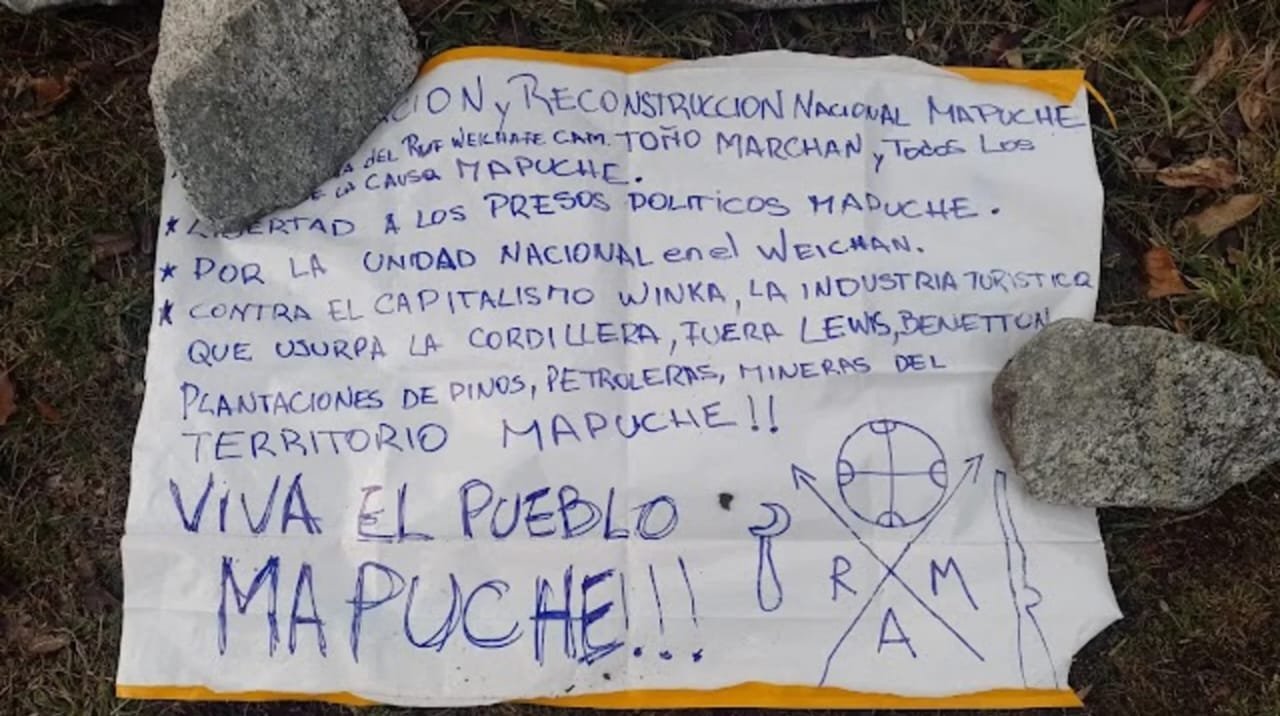 CION y RECONSTRUCCION NACIONAL MAPUCHE
DEL RUF WEICHAFE CAM. TOÑO MARCHAN y TODOS LOS
LA CAUSA MAPUCHE.
* LIBERTAD A LOS PRESOS POLITICOS MAPUCHE.
* POR LA UNIDAD NACIONAL en el WEICHAN.
* CONTRA EL CAPITALISMO WINKA, LA INDUSTRIA TURISTICA
QUE USURPA LA CORDILLERA, FUERA LEWIS, BENETTON
PLANTACIONES DE PINOS, PETROLERAS, MINERAS DEL
TERRITORIO MAPUCHE!!
VIVA EL PUEBLO
MAPUCHE!!!
R M
A